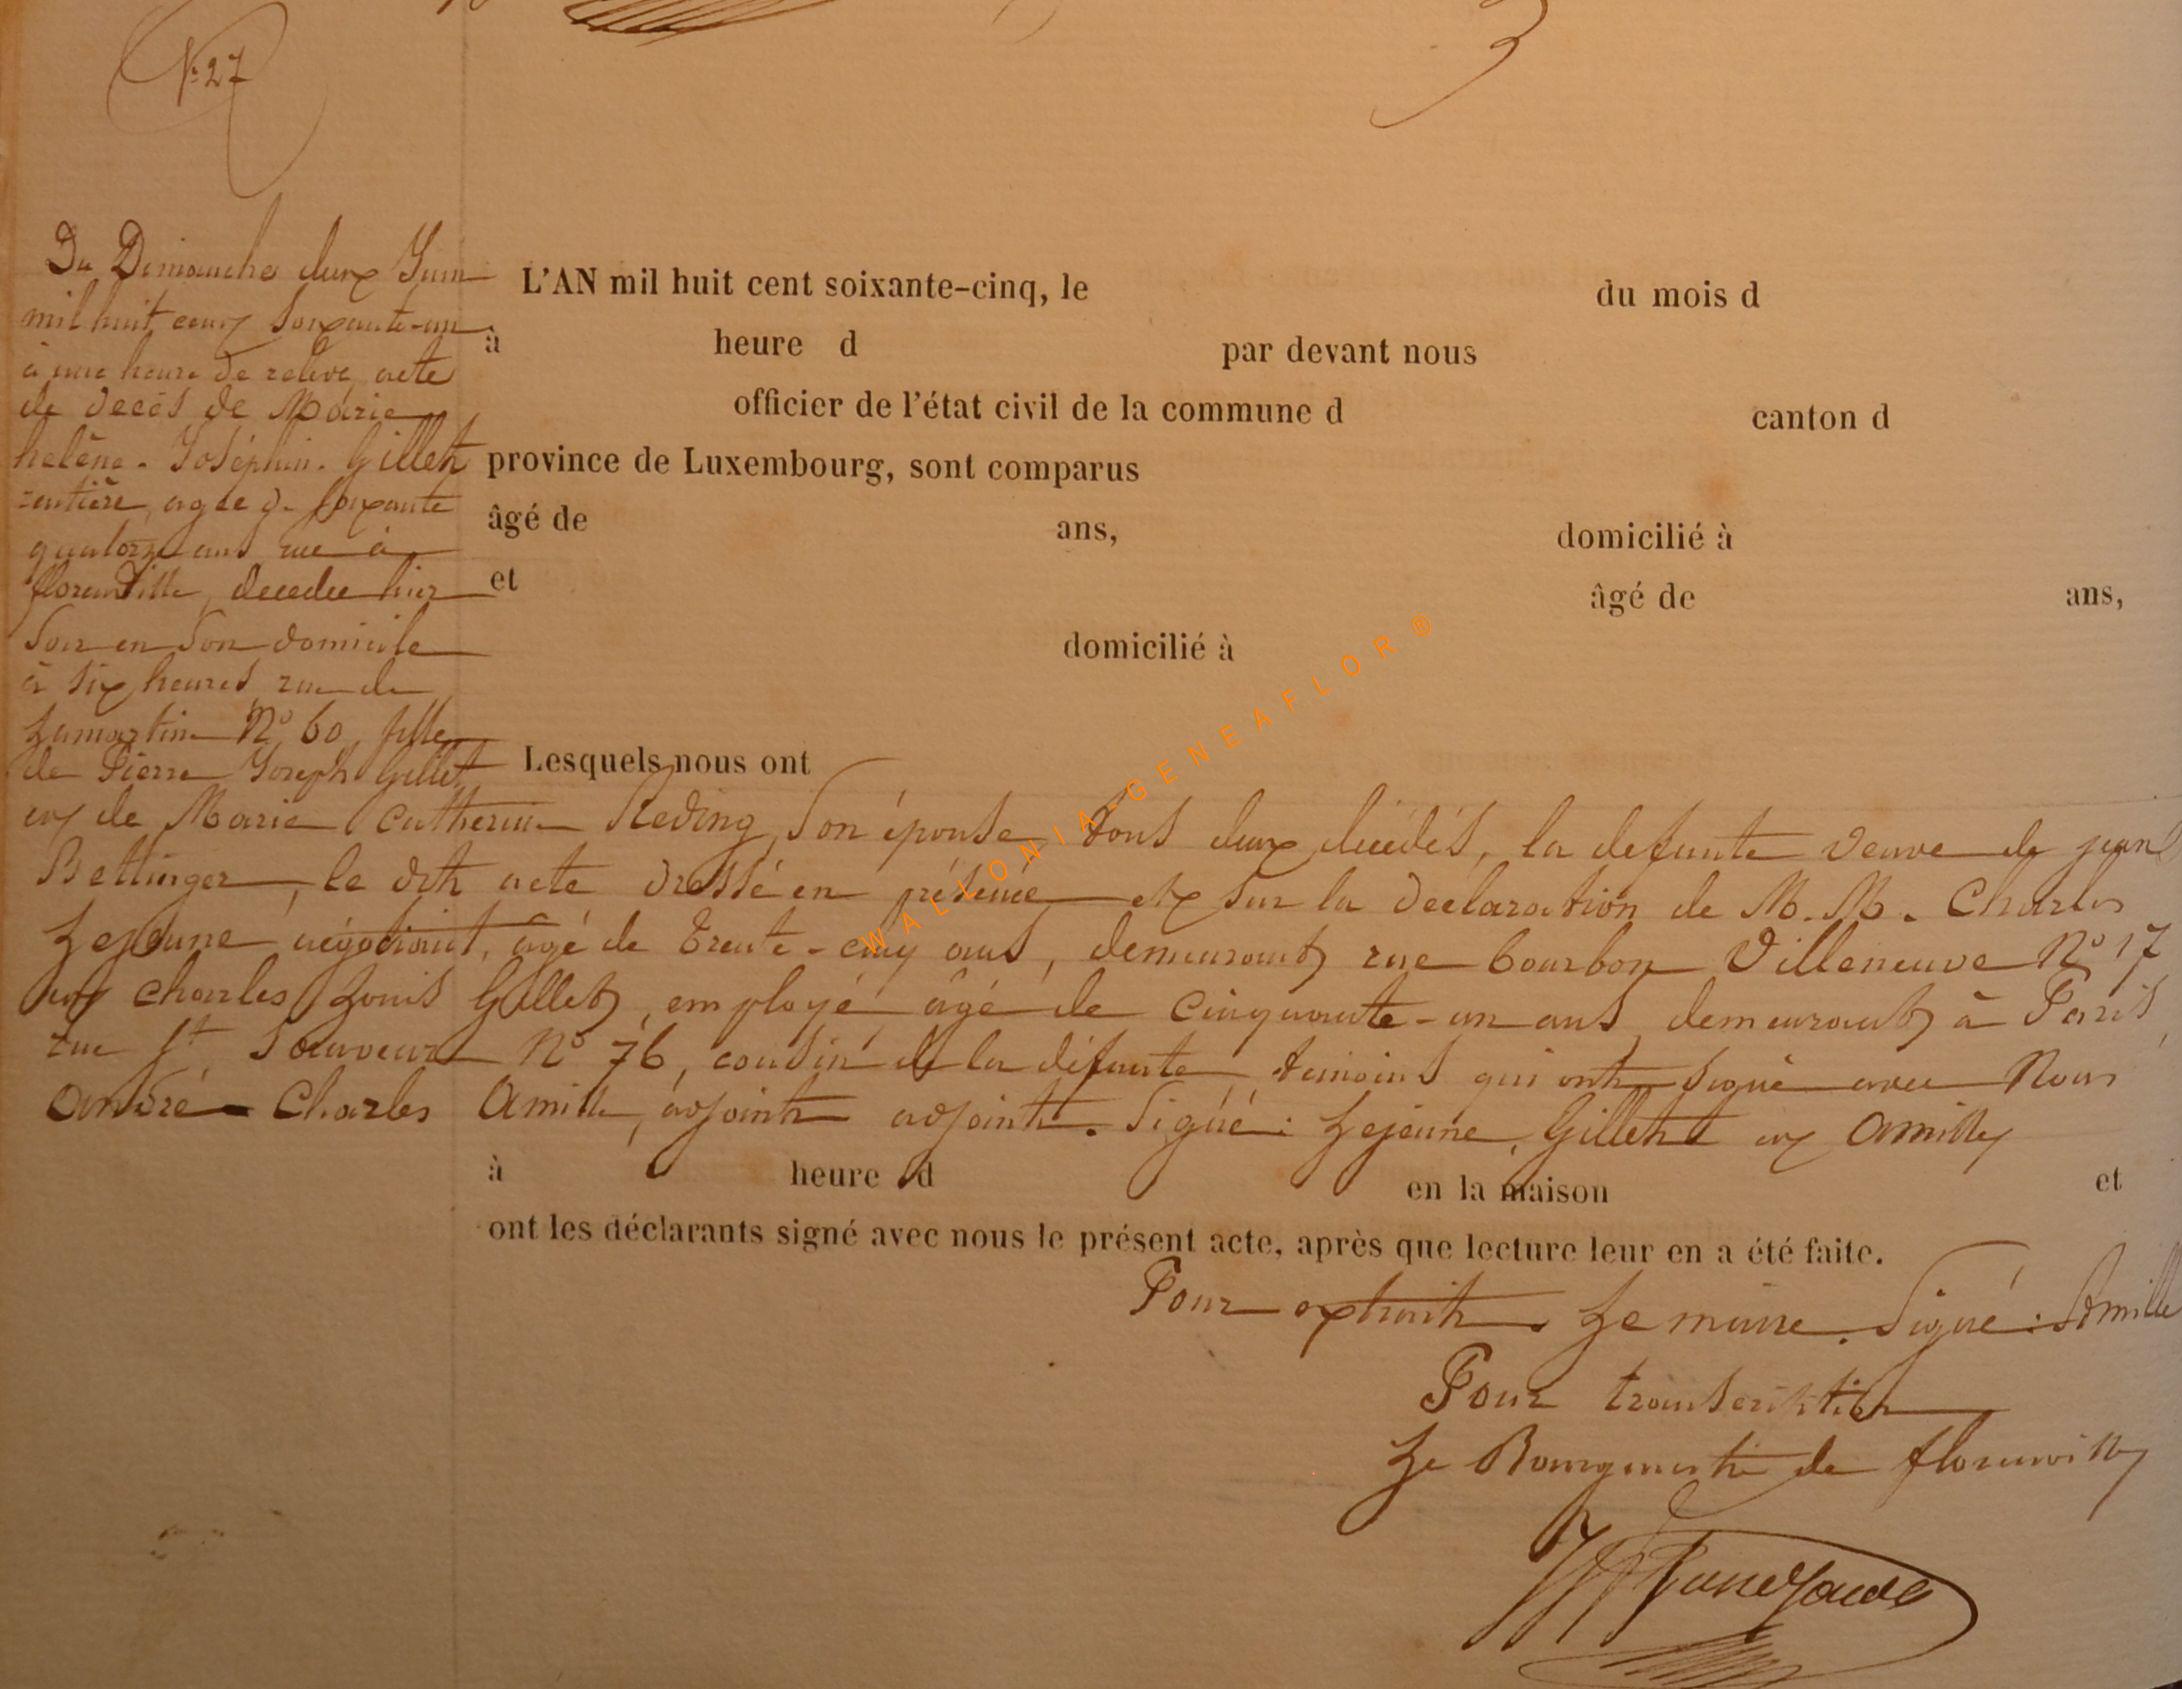 N° 27
Du Dimanche deux Juin
mil huit cent soixante-un
à une heure de relevé, acte
de décès de Marie
hélène. Joséphin. Gillet
rentière, agée de soixante
quatorze ans née à
florenville, decedée hier
soir en son domicile
à six heures, rue de
Lamartine N° 60, fille
de Pierre Joseph Gillet
L'AN mil huit cent soixante-cinq, le du mois d
à heure d par devant nous
officier de l'état civil de la commune d canton d
province de Luxembourg, sont comparus
âgé de ans, domicilié à
et âgé de ans,
domicilié à
Lesquels nous ont
et de Marie Catherine Reding, son épouse, tous deux décédés, la defunte veuve de jean
Bettinger, le dit acte dressé en présence et sur la déclaration de M. M. Charles
Lejeune négociant, âgé de trente-cinq ans, demeurant rue bourbon Villeneuve N° 17
et charles Louis Gillet, employé âgé de cinquante-un ans, demeurant à Paris,
rue St Sauveur N° 76, cousin de la défunte, témoins qui ont signé avec Nous
André Charles Amille, adjoint adjoint. Signé: Lejeune, Gillet et Amille
à heure d en la maison et
ont les déclarants signé avec nous le présent acte, après que lecture leur en a été faite.
Pour extrait. Le maire. Signé: Amille
Pour transcription
Le Bourgmestre de florenville
WALLONIA-GENEAFLOR®